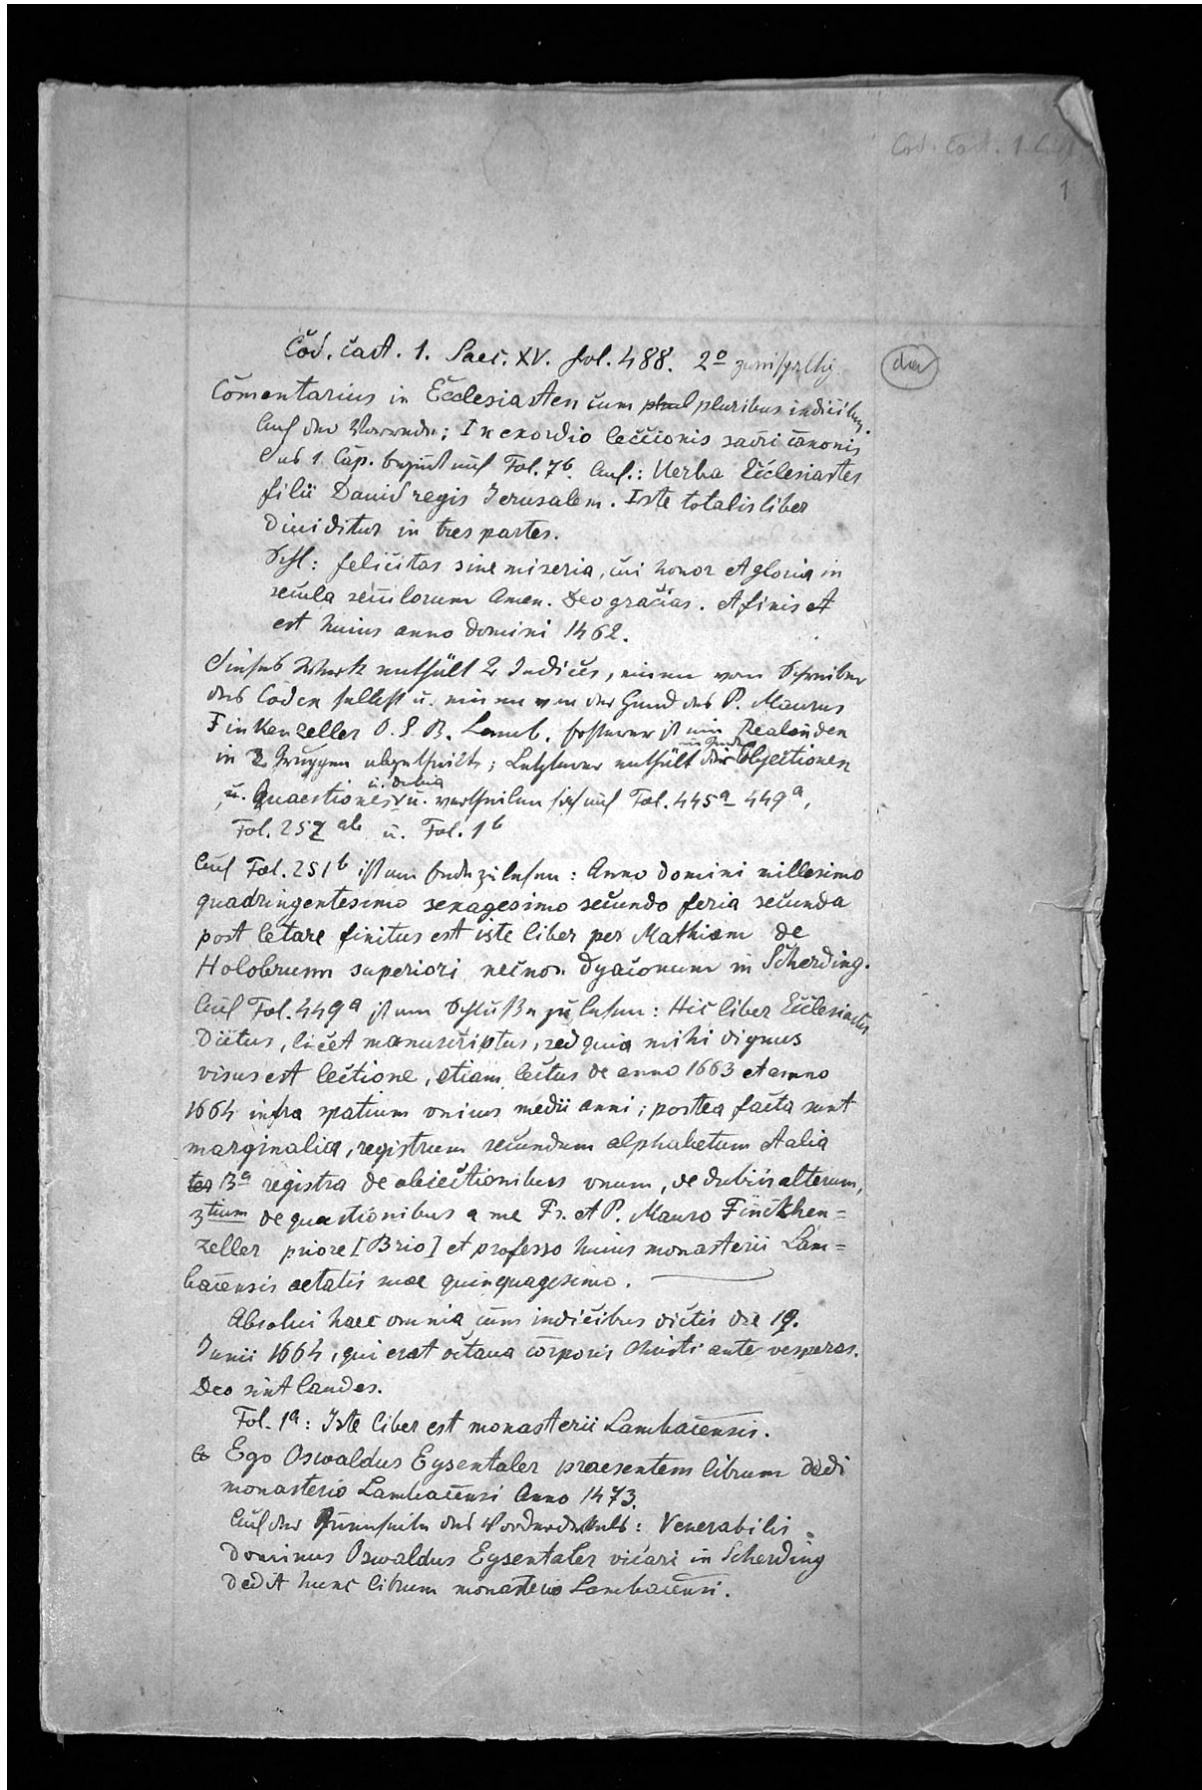 Cod. cart. 1.
1
Cod. cart. 1. Saec. XV. fol. 488. 2º zweispaltig.
da
Comentarius in Ecclesiasten cum pluribus indicibus.
Auf der Vorrede: In exordio leccionis sacri canonis
Das 1. Cap. beginnt auf Fol. 7b. Anf.: Uerba Ecclesiastes
filii Dauid regis Jerusalem. Iste totalis liber
diuiditur in tres partes.
Schl: felicitas sine miseria, cui honor et gloria in
secula seculorum Amen. Deo gracias. et finis et
est huius anno domini 1462.
Dieses Werk enthält 2 Indices, einen vom Schreiber
des Codex selbst u. einen von der Hand des P. Maurus
Finkenzeller O. S. B. Lamb. Ersterer ist ein Realindex
in 2 Gruppen abgetheilt; Letzterer enthält die Objectionen
u. Quaestiones u. dubia u. vertheilen sich auf Fol. 445a-449a,
Fol. 252 ab u. Fol. 1b
Auf Fol. 251b ist am Ende zu lesen: Anno domini millesimo
quadringentesimo sexagesimo secundo feria secunda
post letare finitus est iste liber per Mathiam de
Holobrunn superiori necnon dyaconum in Scherding.
Auf Fol. 449a ist am Schluße zu lesen: Hic liber Ecclesiastes
dictus, licet manuscriptus, sed quia mihi dignus
visus est lectione, etiam lectus de anno 1663 et anno
1664 infra spatium unius medii anni; postea facta sunt
marginalia, registrum secundum alphabetum et alia
3a registra de obiectionibus unum, de dubiis alterum,
3tium de quaestionibus a me Fr. et P. Mauro Finckhen=
zeller priore [Brio] et professo huius monasterii Lam=
bacensis aetatis suae quinquagesimo.
Absolui haec omnia cum indicibus dictis die 19.
Junii 1664, qui erat octaua corporis Christi ante vesperas.
Deo sint laudes.
Fol. 1a: Iste liber est monasterii Lambacensis.
Ego Oswaldus Eysentaler praesentem librum dedi
monasterio Lambacensi Anno 1473.
Auf der Innenseite des Vorderdeckels: Venerabilis
dominus Oswaldus Eysentaler vicari in Scherding
dedit hunc librum monasterio Lambacensi.